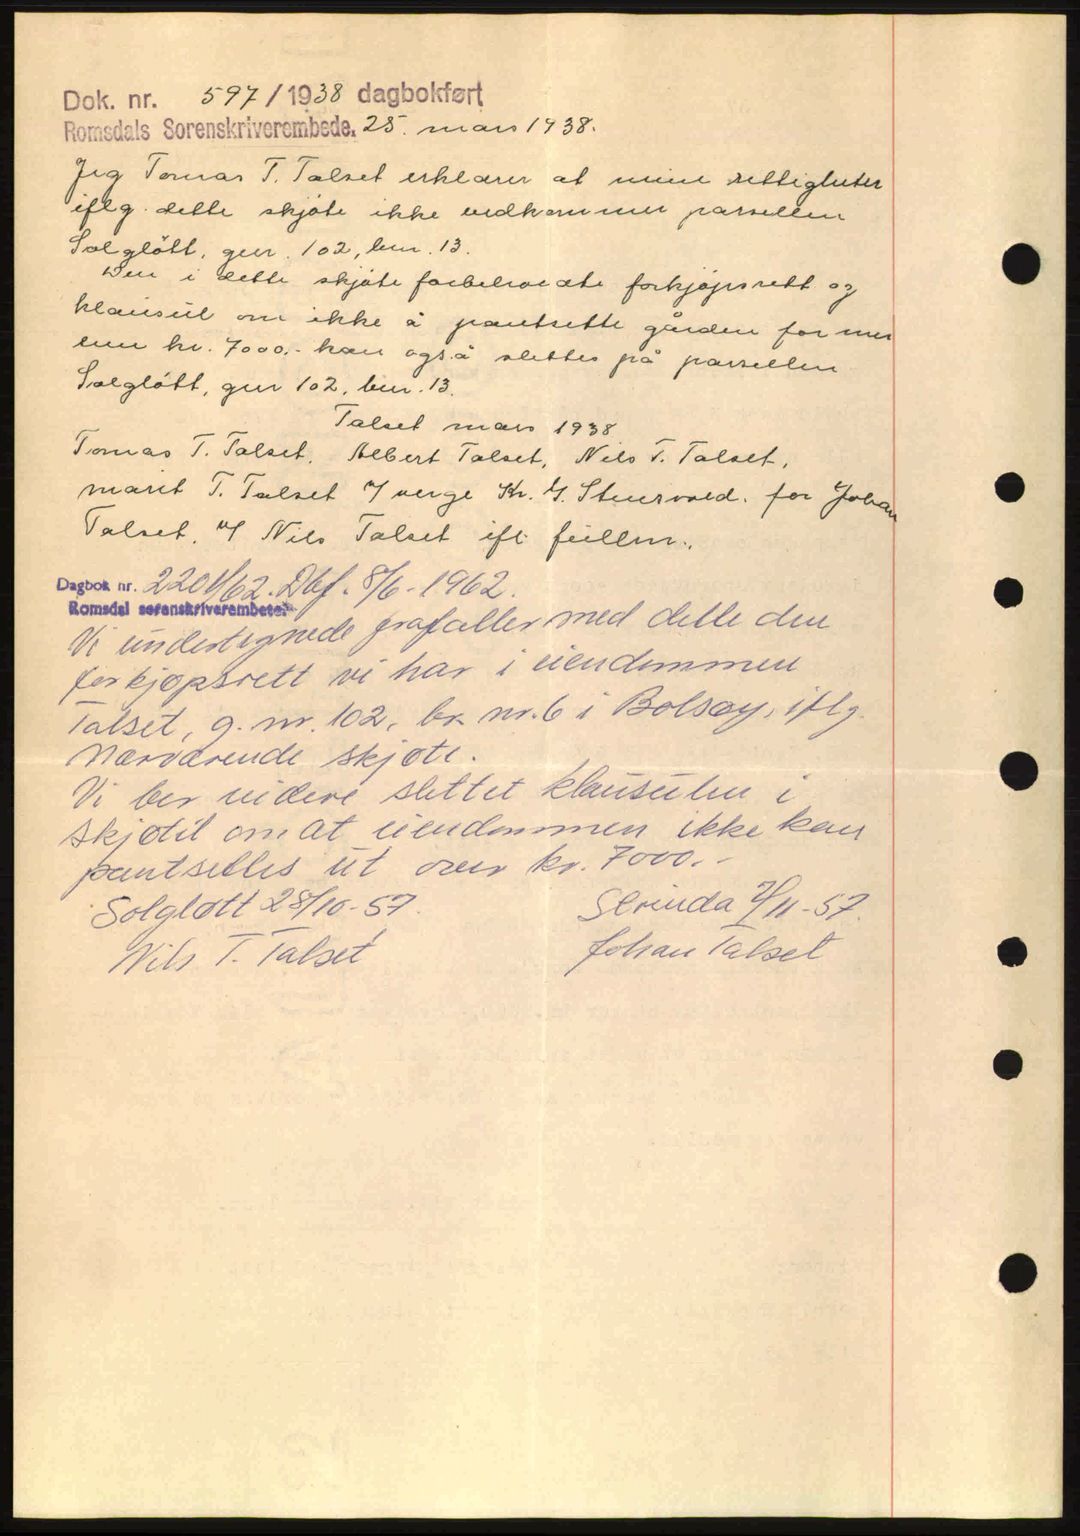 Dok. nr. 597/1938 dagbokført
Romsdals Sorenskriverembede. 25. mars 1938.
Jeg Tomas T. Talset erklærer at mine rettigheter
iflg. dette skjøte ikke vedkommer parsellen
Solgløtt, gnr. 102, bnr. 13.
Den i dette skjøte forbeholdte forkjøpsrett og
klausul om ikke å pantsette gården for mer
enn kr. 7000.- kan også slettes på parsellen
Solgløtt, gnr 102, bnr. 13.
Talset mars 1938
Tomas T. Talset. Albert Talset, Nils T. Talset,
Marit T. Talset v/ verge Kr. for Johan
Talset. v/ Nils Talset ifl. fullm.
Dagbok nr. 2201/62. Dbf. 8/6-1962.
Romsdal sorenskriverembete
Vi undertegnede frafaller med dette den
forkjøpsrett vi har i eiendommen
Talset, g. nr. 102, br. nr. 6 i Bolsøy, iflg.
nærværende skjøte.
Vi ber videre slettet klausulen i
skjøtet om at eiendommen ikke kan
pantsettes ut over kr. 7000.-
Solgløtt 28/10-57. Strinda 7/11-57.
Nils T. Talset Johan Talset